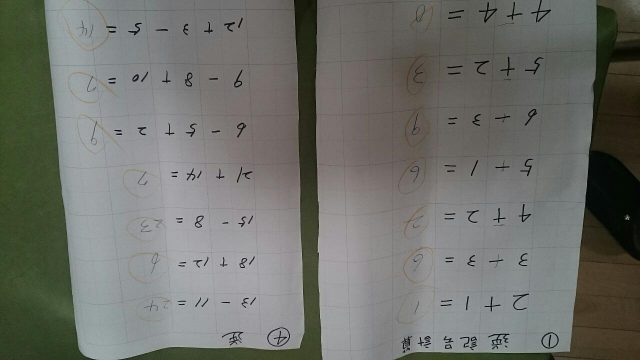 ① 逆記号計算
2 + 1 = 1
3 - 3 = 6
4 + 2 = 2
5 - 1 = 6
6 - 3 = 9
5 + 2 = 3
4 + 4 = 0
④ 逆
13 - 11 = 24
18 + 12 = 6
15 - 8 = 23
21 + 14 = 7
6 - 5 + 2 = 9
9 - 8 + 10 = 7
12 + 3 - 5 = 14